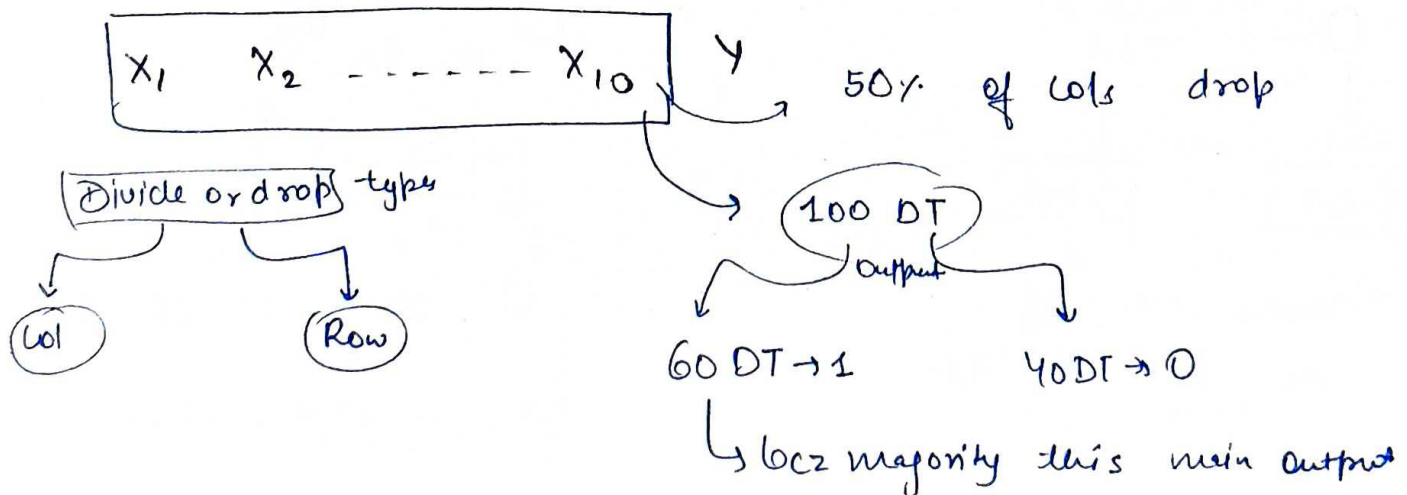 X1 X2 ------ X10 Y
50% of cols drop
Divide or drop types
100 DT
Output
Col Row
60 DT → 1 40 DT → 0
↳ bcz majority this main output